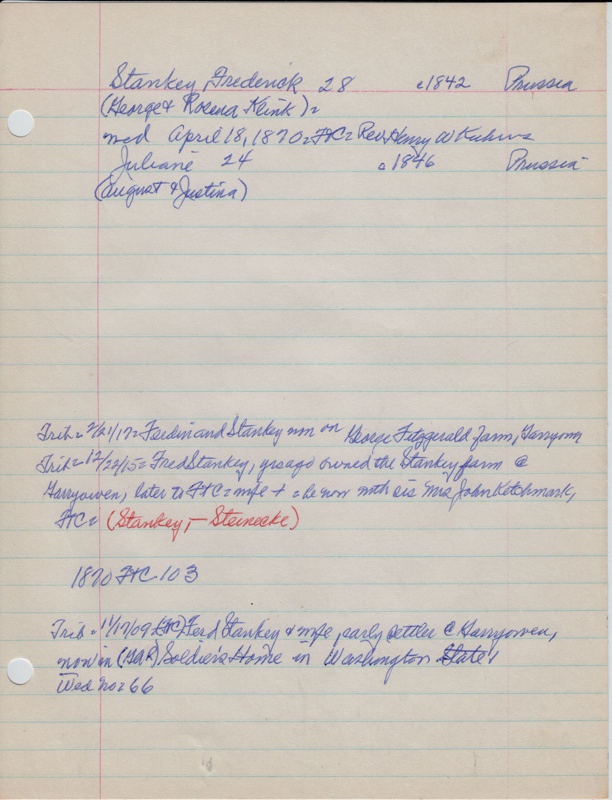 Stankey, Frederick 28 c1842 Prussia
(George & Rosena Klink) =
wed April 18, 1870 = FtC = Rev. Henry W Kuhns
Juliane 24 c1846 Prussia
(August & Justina)
Trib = 2/21/17 = Ferdinand Stankey now on George Fitzgerald Farm, Garryowen
Trib = 12/22/15 = Fred Stankey, yrs ago owned the Stankey farm @
Garryowen, later to FtC = wife + = he now with sis Mrs John Ketchmark,
FtC = (Stankey, — Steinecke)
1870 FtC 103
Trib = 11/17/09 = (FtC) Ferd Stankey & wife, early settler @ Garryowen,
now in (GAR) Soldier's Home in Washington State
Wed no = 66